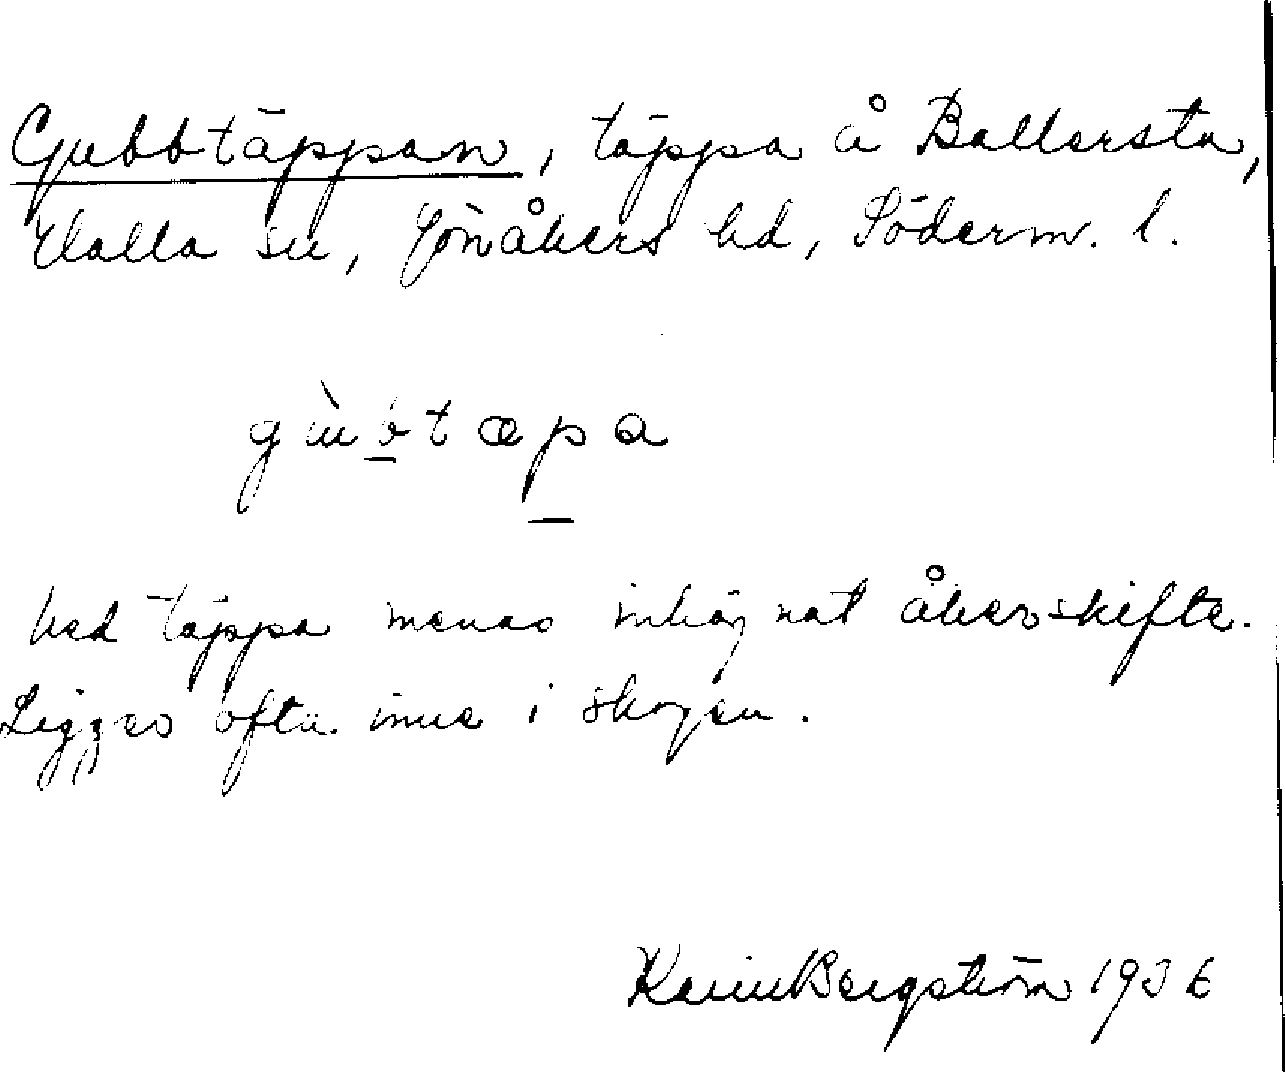 Gubbtäppan, täppa å Ballersta,
Halla sn, Jönåkers hd, Söderm. l.
gùbtæpa
Med täppa menas inhägnat åkerskifte.
Ligger ofta inne i skogen.
Karin Bergström 1936